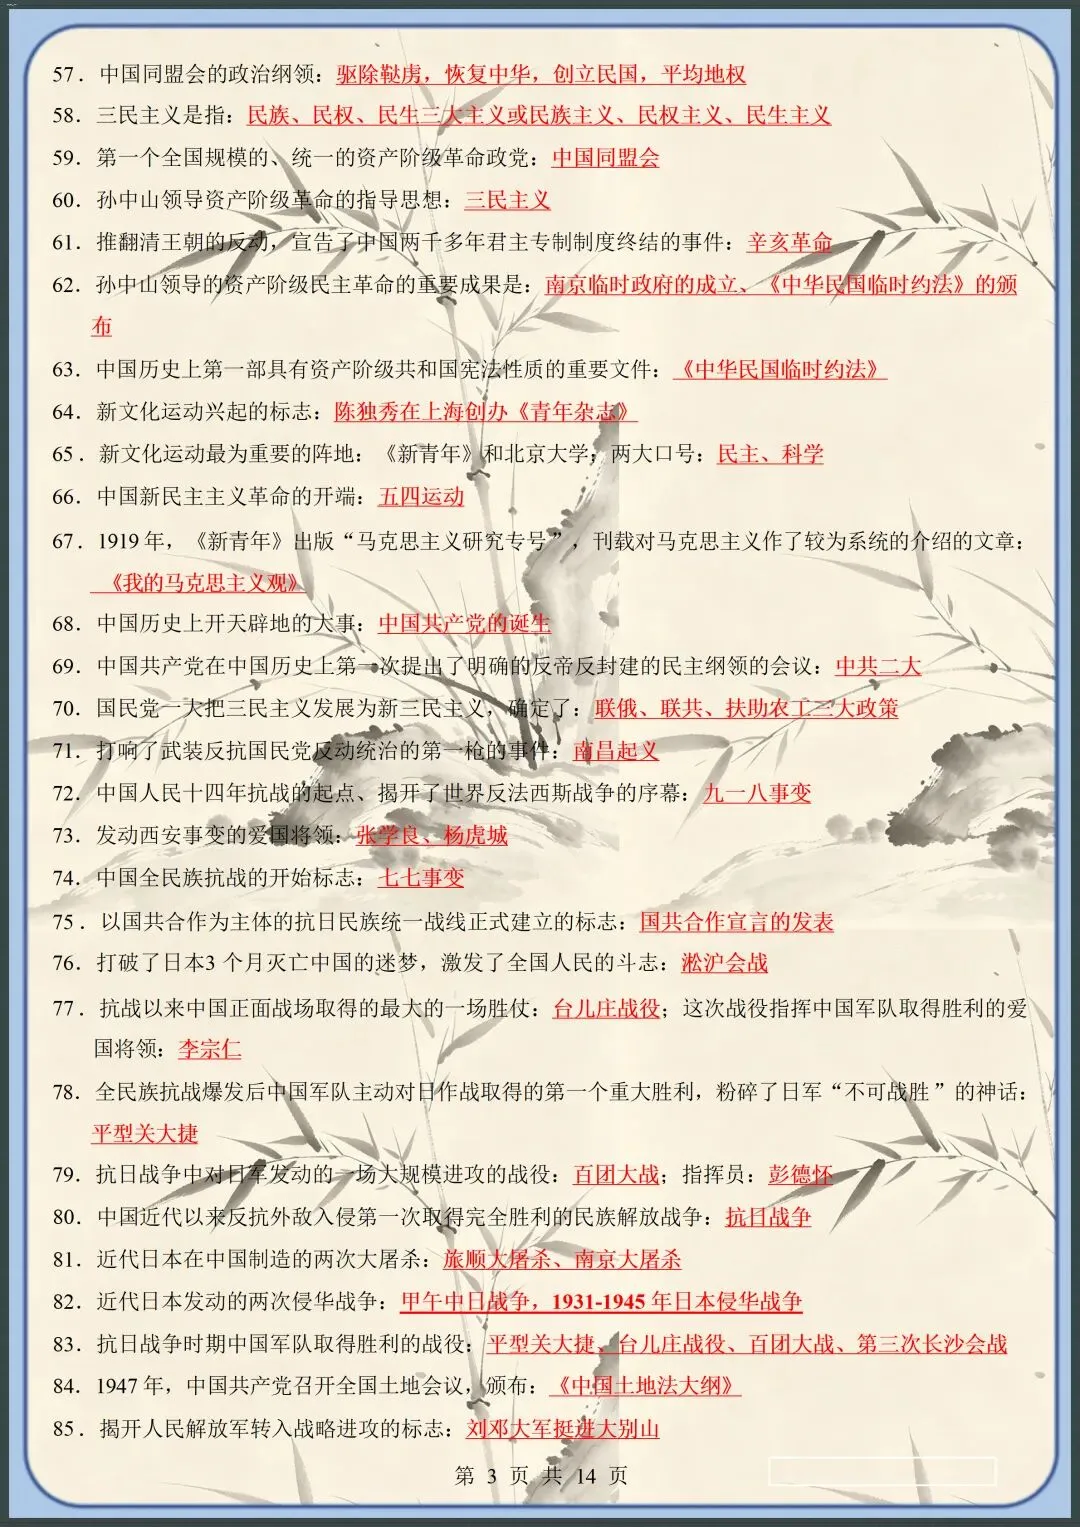 57．中国同盟会的政治纲领：驱除鞑虏，恢复中华，创立民国，平均地权
58．三民主义是指：民族、民权、民生三大主义或民族主义、民权主义、民生主义
59．第一个全国规模的、统一的资产阶级革命政党：中国同盟会
60．孙中山领导资产阶级革命的指导思想：三民主义
61．推翻清王朝的反动，宣告了中国两千多年君主专制制度终结的事件：辛亥革命
62．孙中山领导的资产阶级民主革命的重要成果是：南京临时政府的成立、《中华民国临时约法》的颁
布
63．中国历史上第一部具有资产阶级共和国宪法性质的重要文件：《中华民国临时约法》
64．新文化运动兴起的标志：陈独秀在上海创办《青年杂志》
65．新文化运动最为重要的阵地：《新青年》和北京大学；两大口号：民主、科学
66．中国新民主主义革命的开端：五四运动
67．1919 年，《新青年》出版“马克思主义研究专号”，刊载对马克思主义作了较为系统的介绍的文章：
《我的马克思主义观》
68．中国历史上开天辟地的大事：中国共产党的诞生
69．中国共产党在中国历史上第一次提出了明确的反帝反封建的民主纲领的会议：中共二大
70．国民党一大把三民主义发展为新三民主义，确定了：联俄、联共、扶助农工三大政策
71．打响了武装反抗国民党反动统治的第一枪的事件：南昌起义
72．中国人民十四年抗战的起点、揭开了世界反法西斯战争的序幕：九一八事变
73．发动西安事变的爱国将领：张学良、杨虎城
74．中国全民族抗战的开始标志：七七事变
75．以国共合作为主体的抗日民族统一战线正式建立的标志：国共合作宣言的发表
76．打破了日本3 个月灭亡中国的迷梦，激发了全国人民的斗志：淞沪会战
77．抗战以来中国正面战场取得的最大的一场胜仗：台儿庄战役；这次战役指挥中国军队取得胜利的爱
国将领：李宗仁
78．全民族抗战爆发后中国军队主动对日作战取得的第一个重大胜利，粉碎了日军“不可战胜”的神话：
平型关大捷
79．抗日战争中对日军发动的一场大规模进攻的战役：百团大战；指挥员：彭德怀
80．中国近代以来反抗外敌入侵第一次取得完全胜利的民族解放战争：抗日战争
81．近代日本在中国制造的两次大屠杀：旅顺大屠杀、南京大屠杀
82．近代日本发动的两次侵华战争：甲午中日战争，1931-1945 年日本侵华战争
83．抗日战争时期中国军队取得胜利的战役：平型关大捷、台儿庄战役、百团大战、第三次长沙会战
84．1947 年，中国共产党召开全国土地会议，颁布：《中国土地法大纲》
85．揭开人民解放军转入战略进攻的标志：刘邓大军挺进大别山
第 3 页 共 14 页